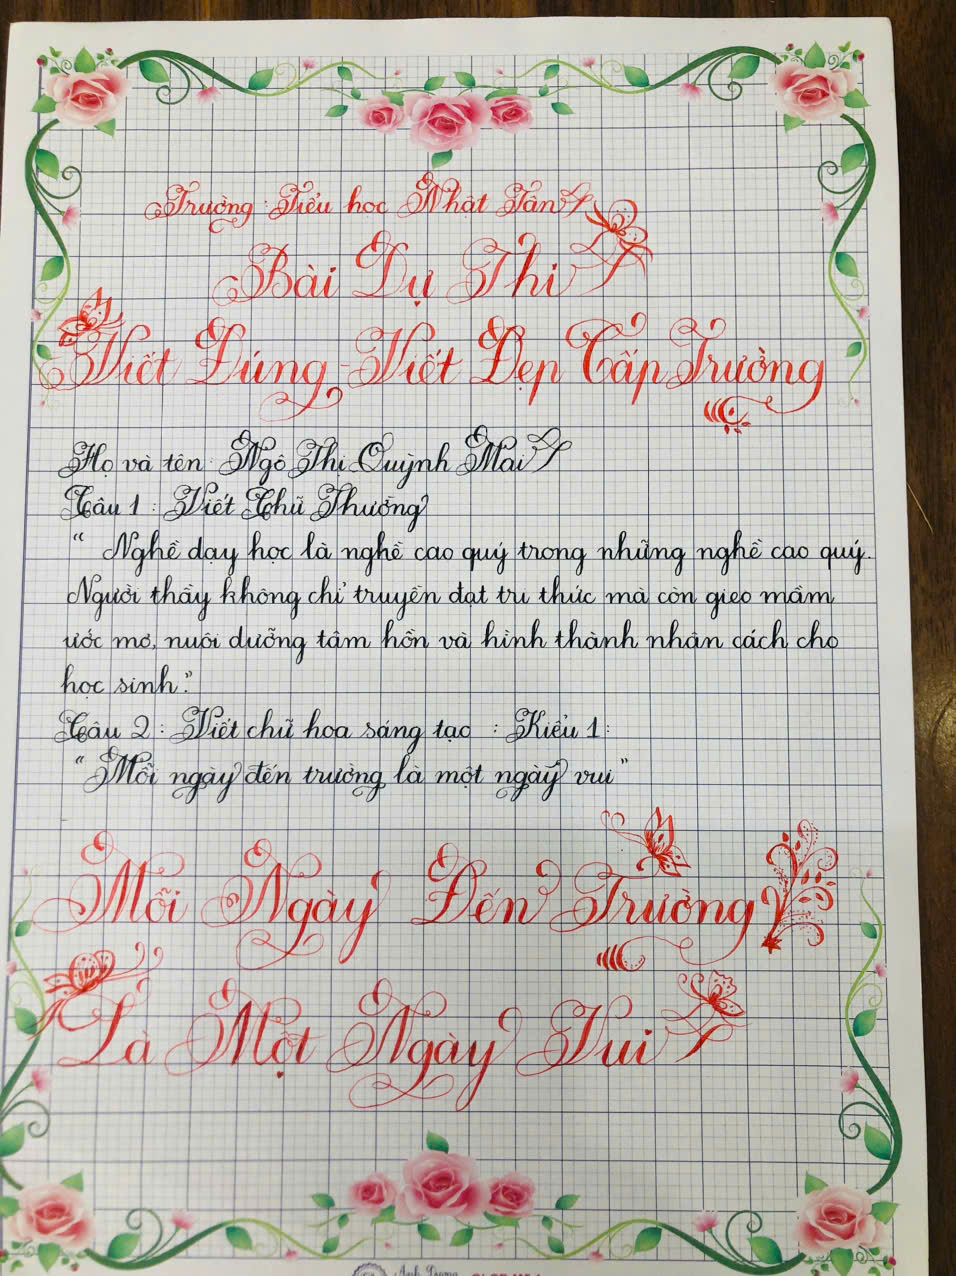 Trường : Tiểu học Nhật Tân
Bài Dự Thi
Viết Đúng - Viết Đẹp Cấp Trường
Họ và tên : Ngô Thị Quỳnh Mai
Câu 1 : Viết Chữ Thường
“ Nghề dạy học là nghề cao quý trong những nghề cao quý.
Người thầy không chỉ truyền đạt tri thức mà còn gieo mầm
ước mơ, nuôi dưỡng tâm hồn và hình thành nhân cách cho
học sinh.”
Câu 2 : Viết chữ hoa sáng tạo : Kiểu 1 :
“ Mỗi ngày đến trường là một ngày vui ”
Mỗi Ngày Đến Trường
Là Một Ngày Vui